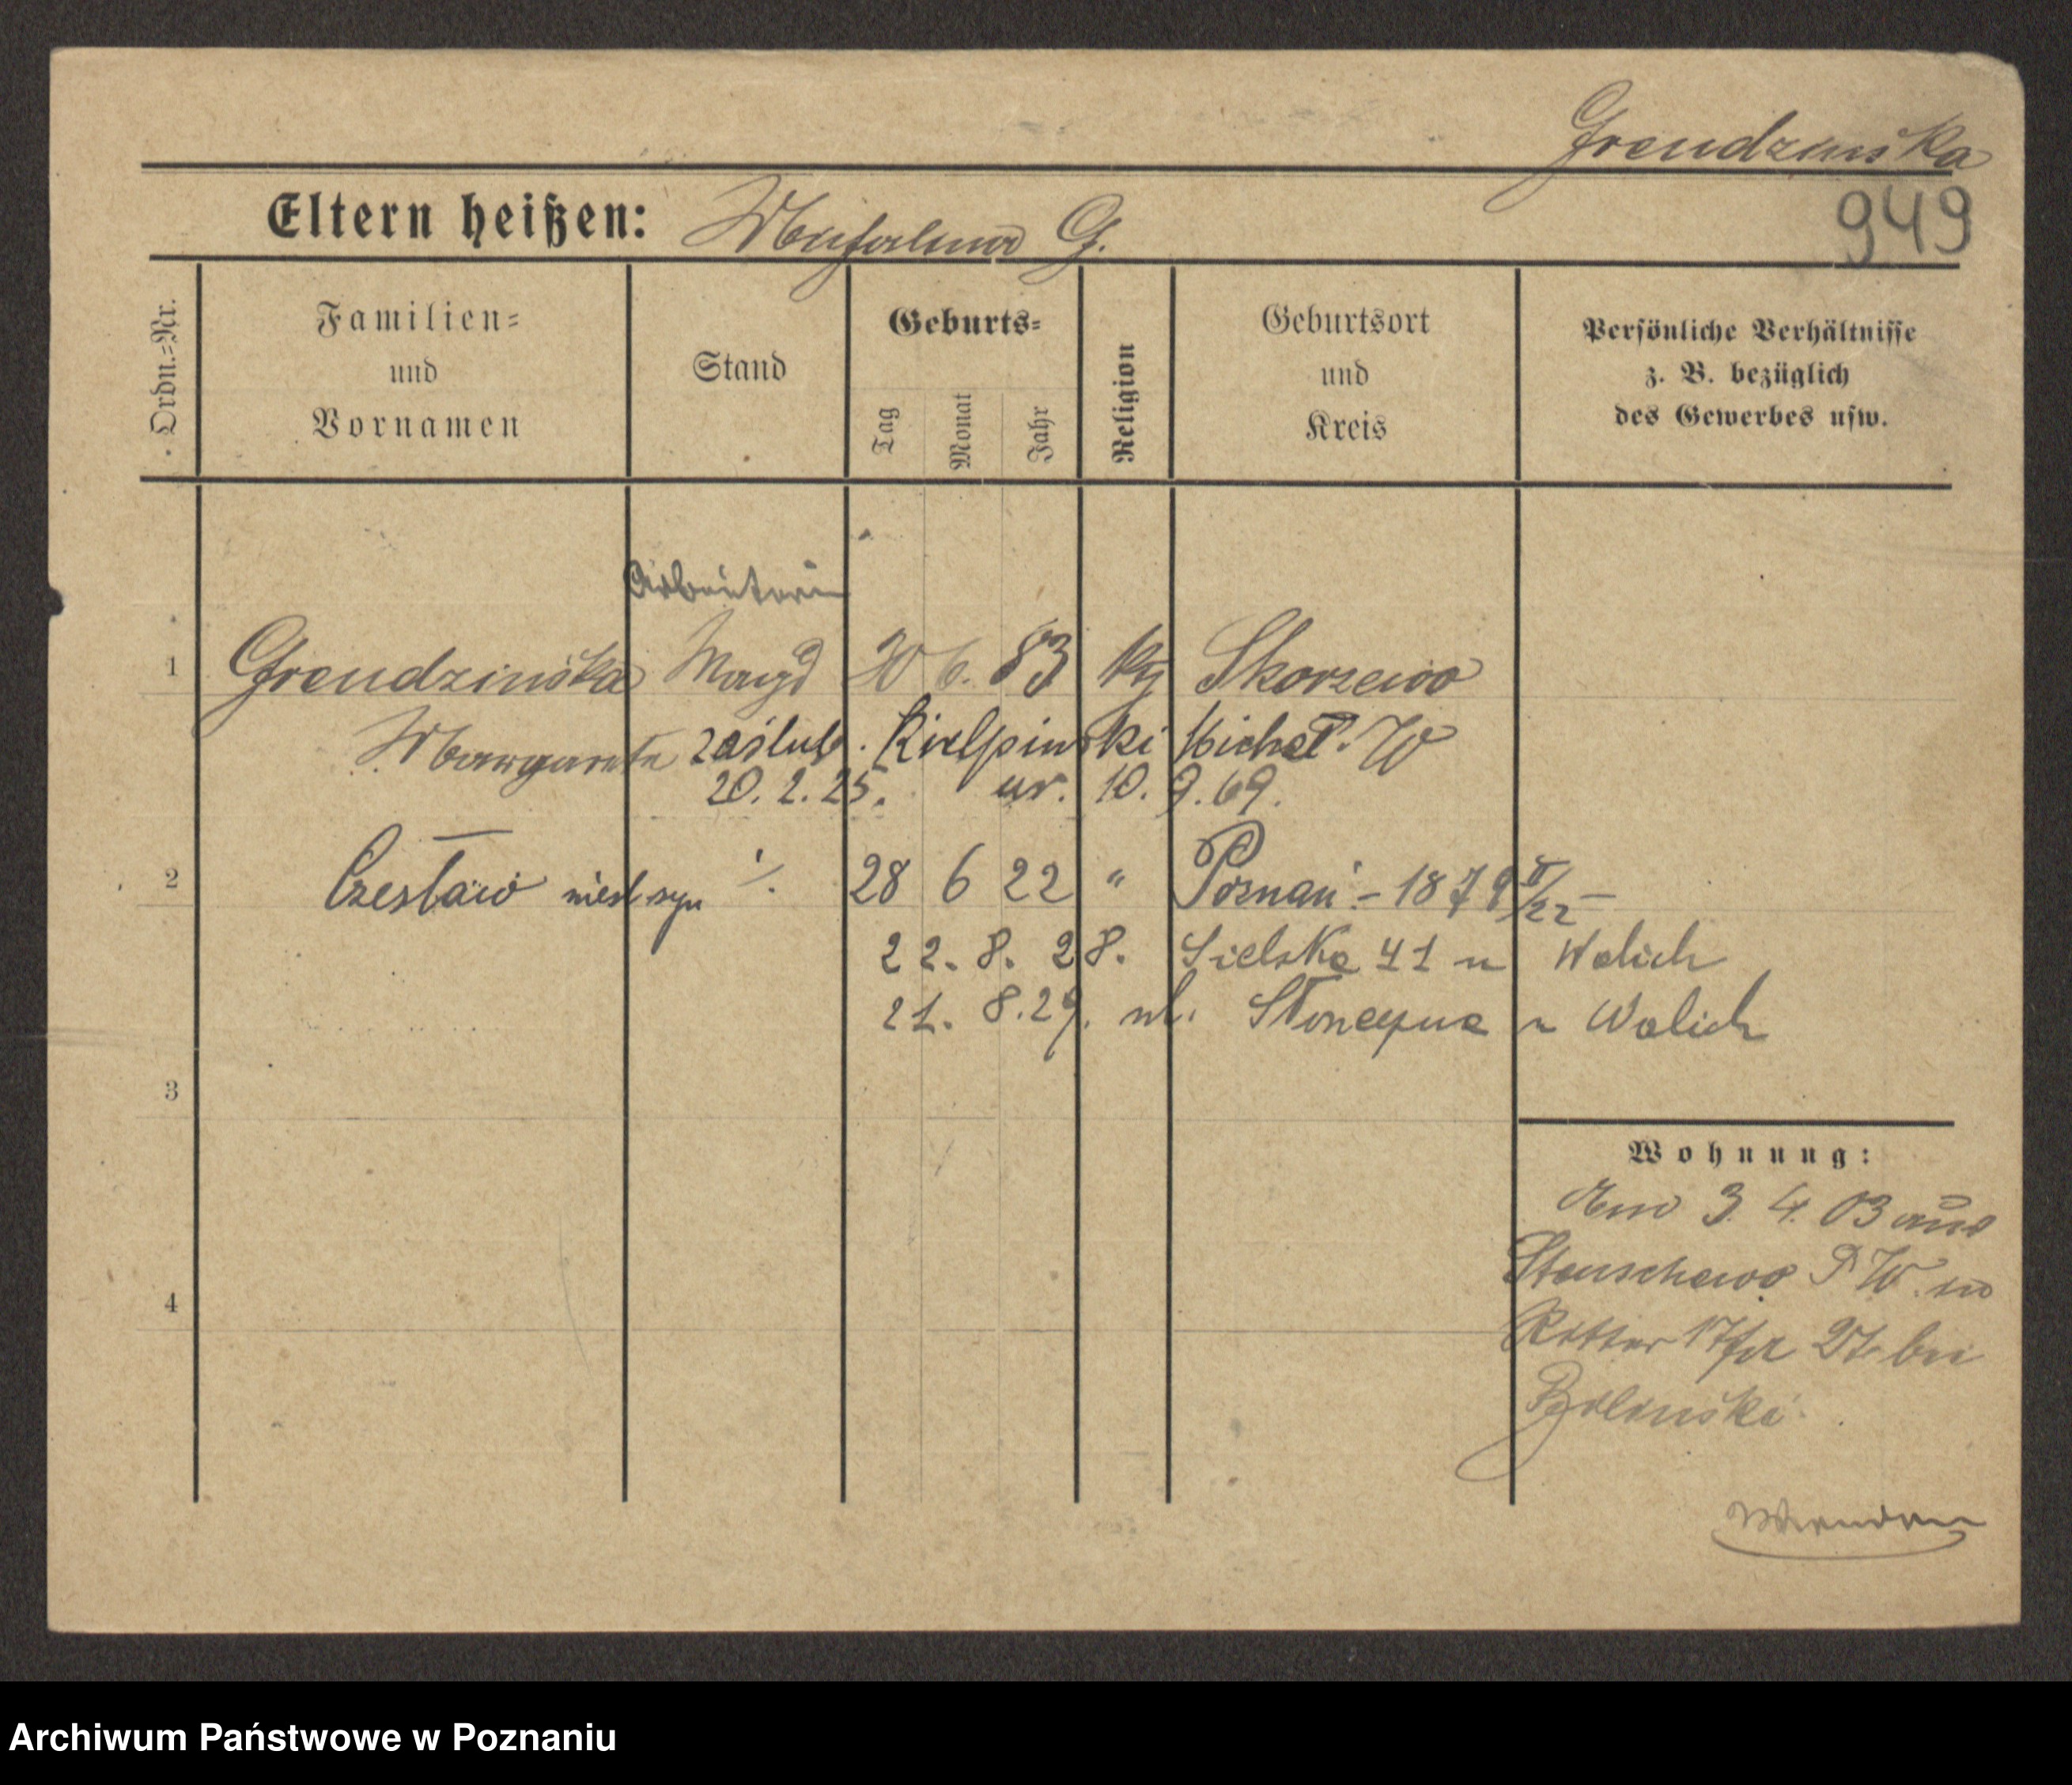 Grendzinska
949
Eltern heißen: G.
Ordn.=Nr.
Familien=
und
Vornamen
Stand
Geburts=
Tag
Monat
Jahr
Religion
Geburtsort
und
Kreis
Persönliche Verhältnisse
z. B. bezüglich
des Gewerbes usw.
Arbeiterin
1 Grendzinska Magd 20 6. 83 Skorzewo
Margarete zaślub. Kielpinski Michał. W
20. 2. 25. ur. 10. 9. 69.
2 Czesław niesl syn ·/. 28 6 22 " Poznań - 1879 II/22 -
22. 8. 28. Sielska 41 u Walich
21. 8. 29. ul. Słoneczna u Walich
3
Wohnung:
3. 4. 03 aus
P. W. in
4
Ritter 17 bei